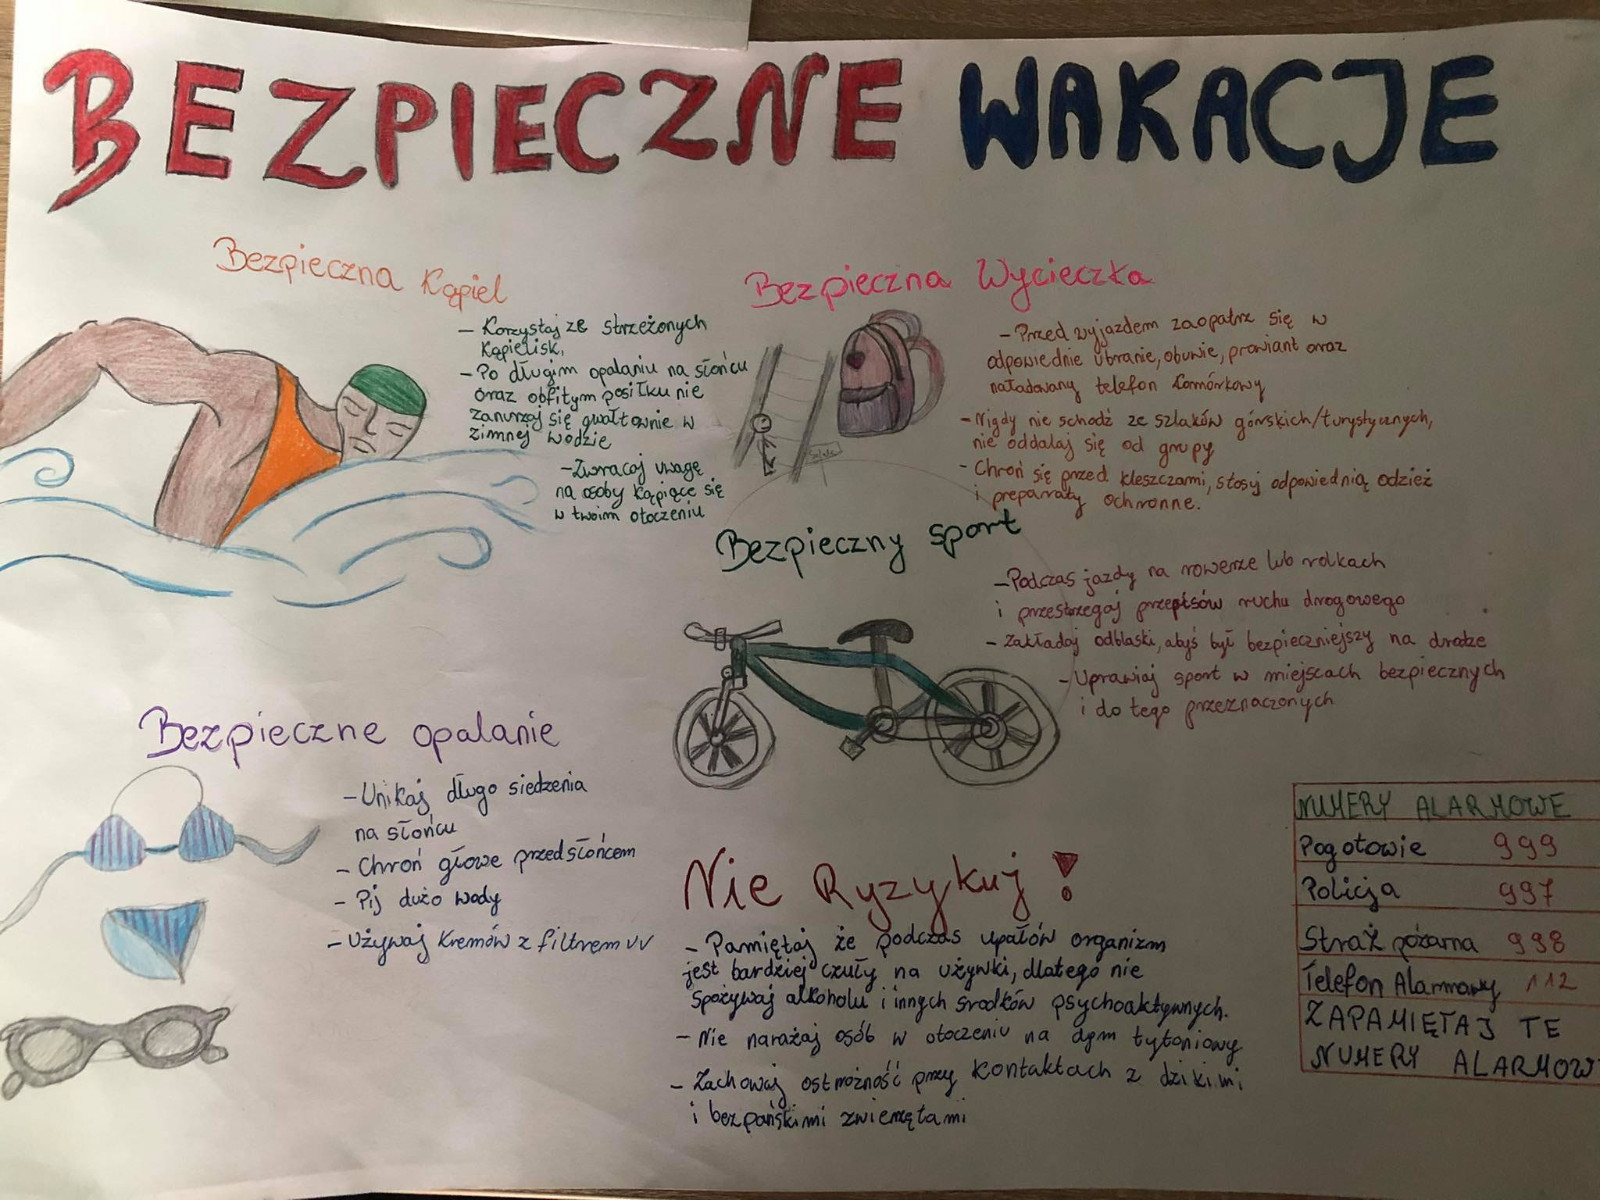 BEZPIECZNE WAKACJE
Bezpieczna Kąpiel
– Korzystaj ze strzeżonych
kąpielisk,
– Po długim opalaniu na słońcu
oraz obfitym posiłku nie
zanurzaj się gwałtownie w
zimnej wodzie
– Zwracaj uwagę
na osoby kąpiące się
w twoim otoczeniu
Bezpieczna Wycieczka
– Przed wyjazdem zaopatrz się w
odpowiednie ubranie, obuwie, prowiant oraz
naładowany telefon komórkowy
– Nigdy nie schodź ze szlaków górskich/turystycznych,
nie oddalaj się od grupy
– Chroń się przed kleszczami, stosuj odpowiednią odzież
i preparaty ochronne.
Bezpieczny sport
– Podczas jazdy na rowerze lub rolkach
i przestrzegaj przepisów ruchu drogowego
– Zakładaj odblaski, abyś był bezpieczniejszy na drodze
– Uprawiaj sport w miejscach bezpiecznych
i do tego przeznaczonych
Bezpieczne opalanie
– Unikaj długo siedzenia
na słońcu
– Chroń głowe przed słońcem
– Pij dużo wody
– Używaj kremów z filtrem UV
Nie Ryzykuj!
– Pamiętaj że podczas upałów organizm
jest bardziej czuły na używki, dlatego nie
spożywaj alkoholu i innych środków psychoaktywnych.
– Nie narażaj osób w otoczeniu na dym tytoniowy
– Zachowaj ostrożność przy kontaktach z dzikimi
i bezpańskimi zwierzętami
NUMERY ALARMOWE
Pogotowie 999
Policja 997
Straż pożarna 998
Telefon Alarmowy 112
ZAPAMIĘTAJ TE
NUMERY ALARMOW